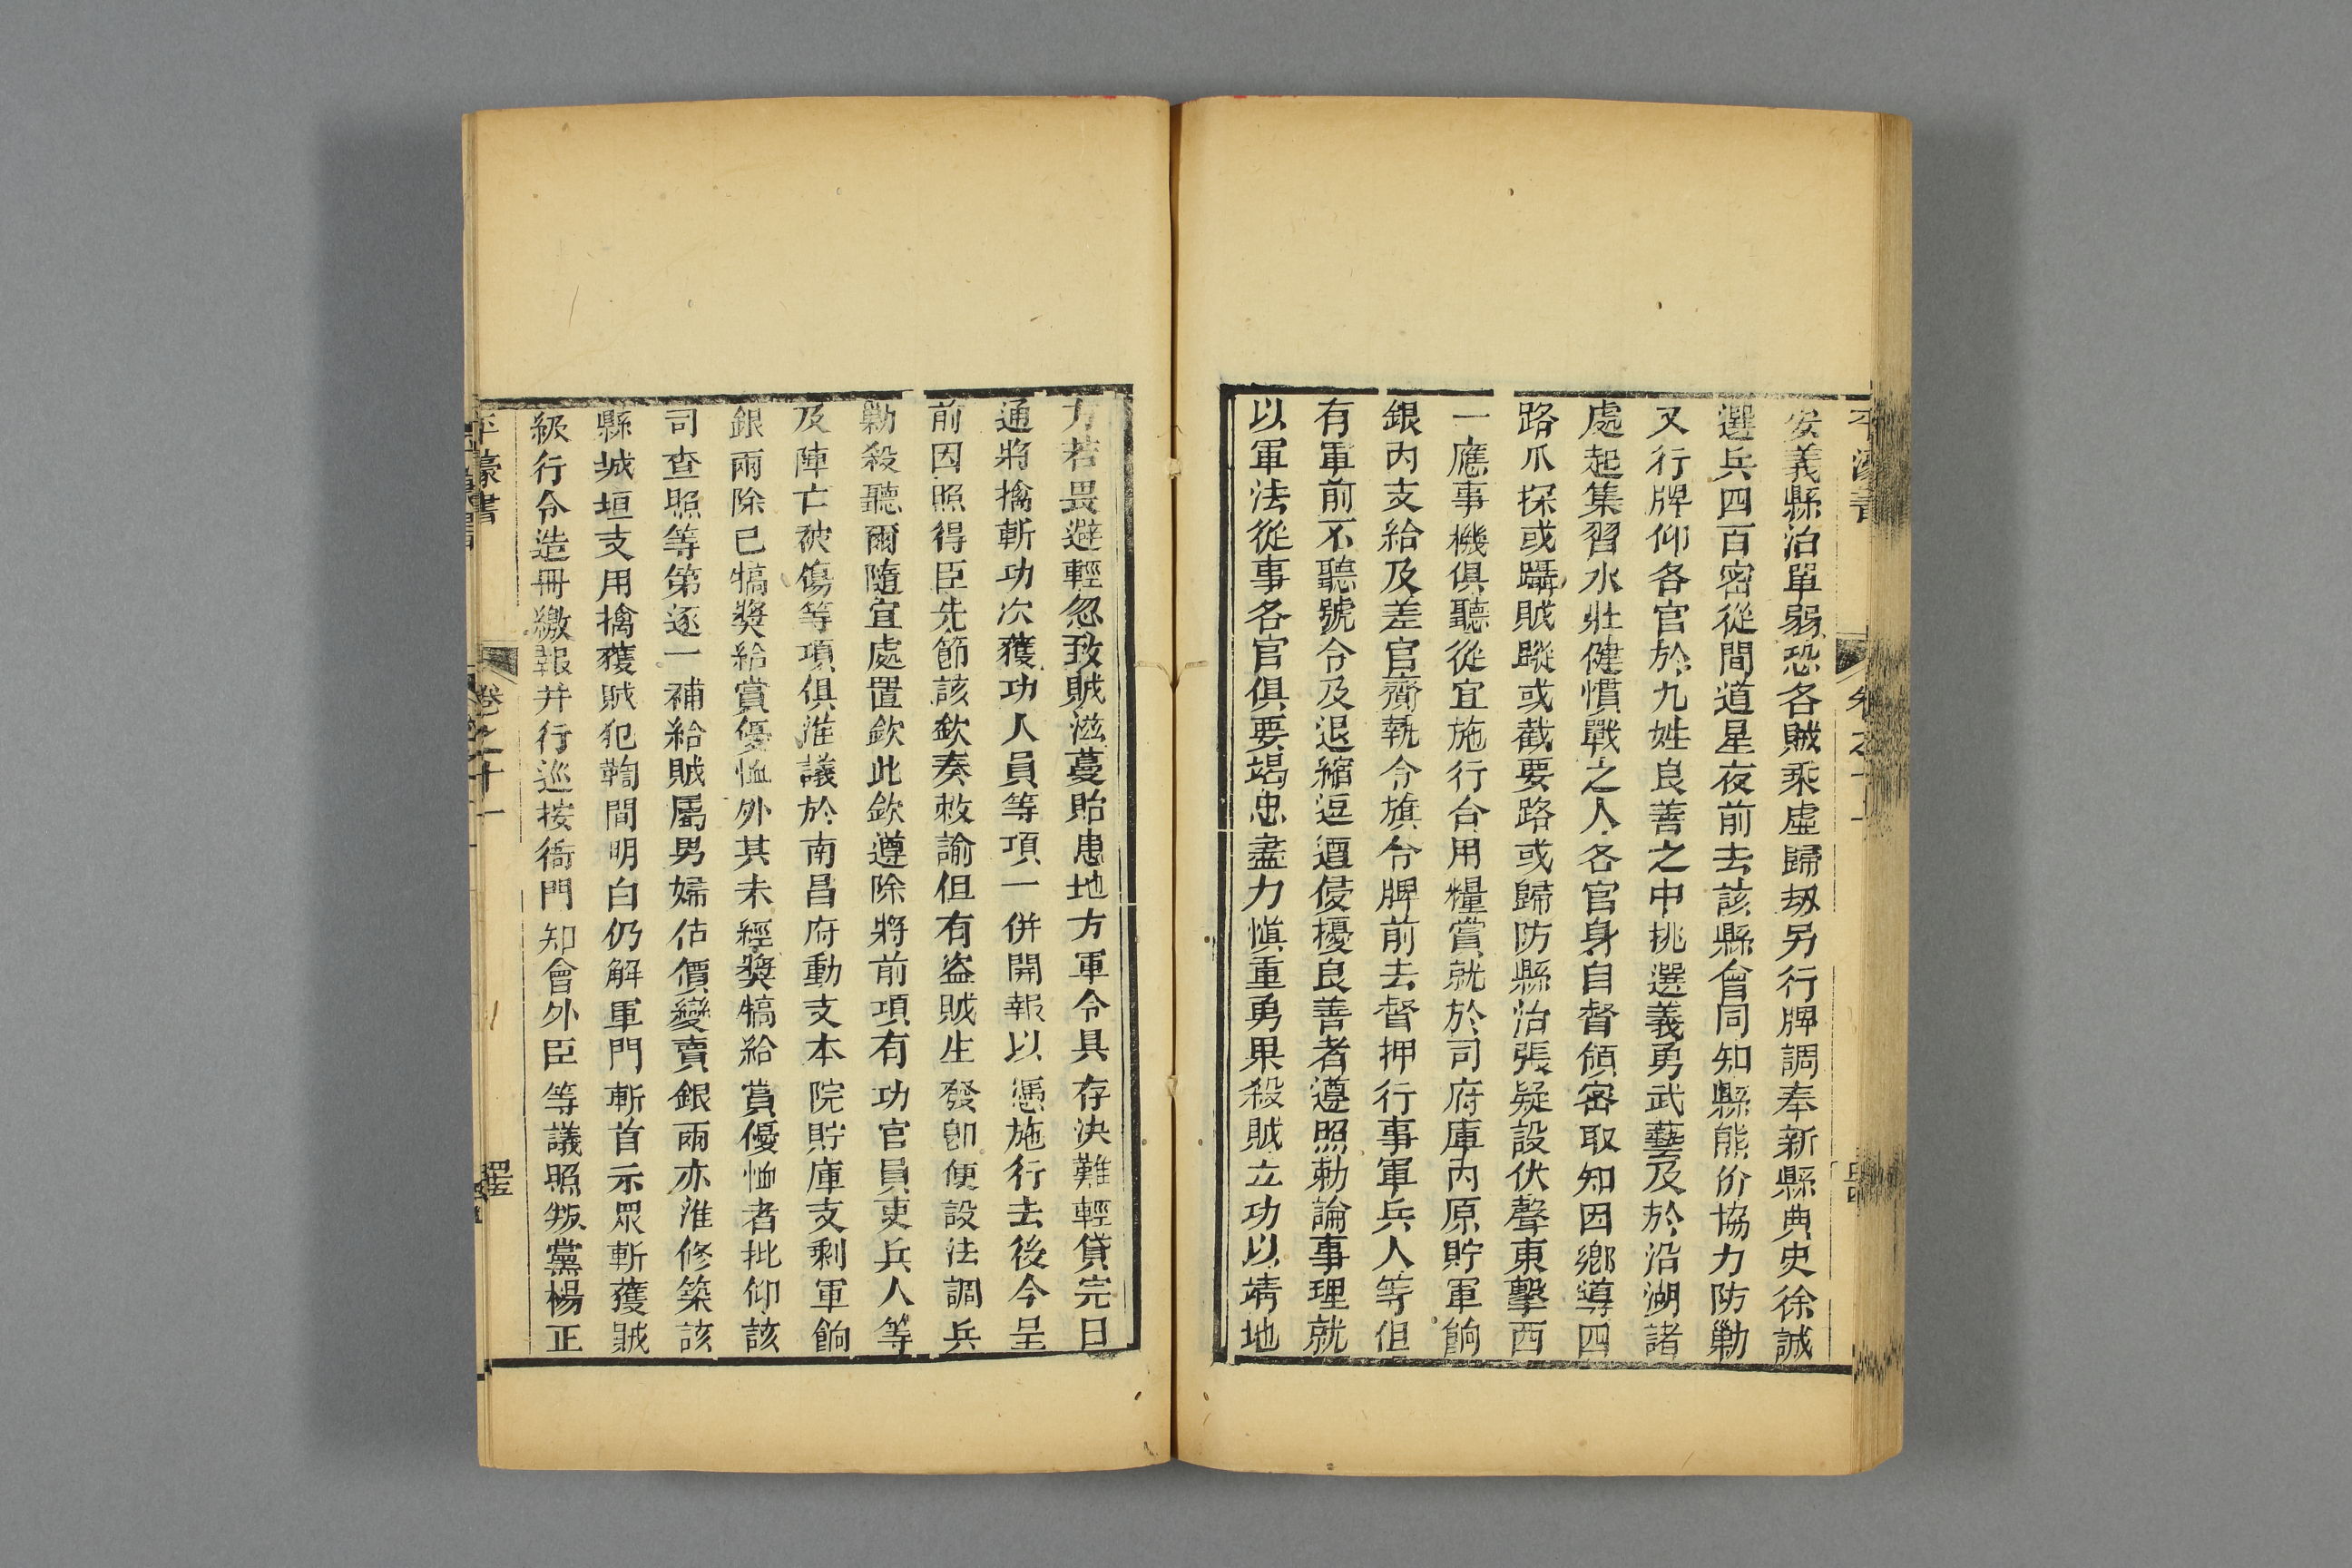 安義縣治單弱恐各賊乘虛歸劫另行牌調奉新縣典史徐誠
選兵四百密從間道星夜前去該縣會同知縣熊价協力防勦
又行牌仰各官於九姓良善之中挑選義勇武藝及於沿湖諸
處起集習水壯健慣戰之人各官身自督領密取知因鄉導四
路爪探或躡賊蹤或截要路或歸防縣治張疑設伏聲東擊西
一應事機俱聽從宜施行合用糧賞就於司府庫內原貯軍餉
銀內支給及差官齎執令旗令牌前去督押行事軍兵人等但
有軍前不聽號令及退縮逗遛侵擾良善者遵照勅諭事理就
以軍法從事各官俱要竭忠盡力慎重勇果殺賊立功以靖地
方若畏避輕忽致賊滋蔓貽患地方軍令具存決難輕貸完日
通將擒斬功次獲功人員等項一併開報以憑施行去後今呈
前因照得臣先節該欽奏敕諭但有盜賊生發卽便設法調兵
勦殺聽爾隨宜處置欽此欽遵除將前項有功官員吏兵人等
及陣亡被傷等項俱准議於南昌府動支本院貯庫支剩軍餉
銀兩除已犒獎給賞優恤外其未經獎犒給賞優恤者批仰該
司查照等第逐一補給賊屬男婦估價變賣銀兩亦准修築該
縣城垣支用擒獲賊犯鞫間明白仍解軍門斬首示眾斬獲賊
級行令造冊繳報并行巡按衙門知會外臣等議照叛黨楊正
平濠書
卷之十一